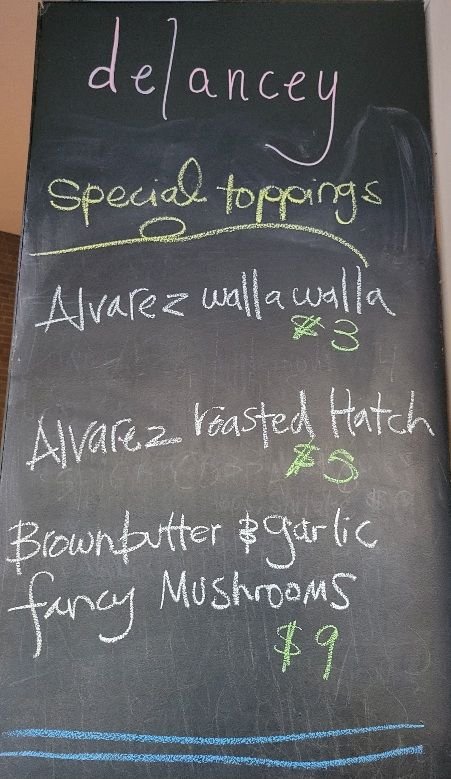 delancey
Special toppings
Alvarez walla walla
$3
Alvarez roasted Hatch
$5
Brownbutter & garlic
fancy Mushrooms
$9